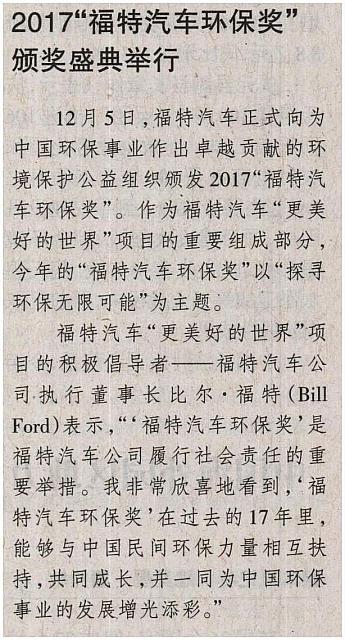 2017“福特汽车环保奖”
颁奖盛典举行
12月5日,福特汽车正式向为
中国环保事业作出卓越贡献的环
境保护公益组织颁发2017“福特汽
车环保奖”。作为福特汽车“更美
好的世界”项目的重要组成部分,
今年的“福特汽车环保奖”以“探寻
环保无限可能”为主题。
福特汽车“更美好的世界”项
目的积极倡导者——福特汽车公
司执行董事长比尔·福特(Bill
Ford)表示,“‘福特汽车环保奖’是
福特汽车公司履行社会责任的重
要举措。我非常欣喜地看到,‘福
特汽车环保奖’在过去的17年里,
能够与中国民间环保力量相互扶
持,共同成长,并一同为中国环保
事业的发展增光添彩。”